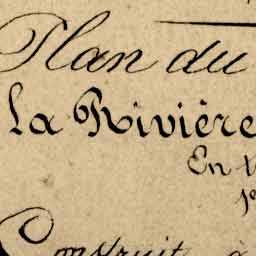 Plan du
la Rivière
En
Construit à